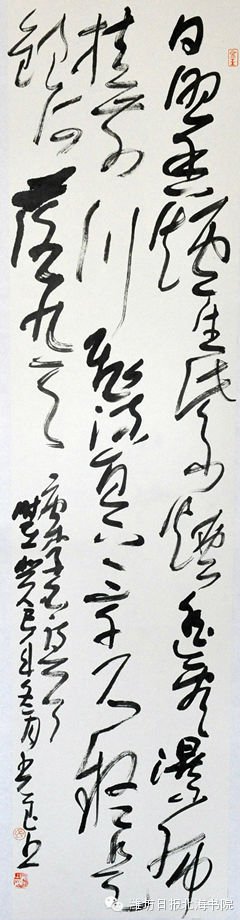 日照香爐生紫煙遥看瀑布
挂前川飛流直下三千尺疑是
銀河落九天
癸巳年冬月
潍坊日报北海书院